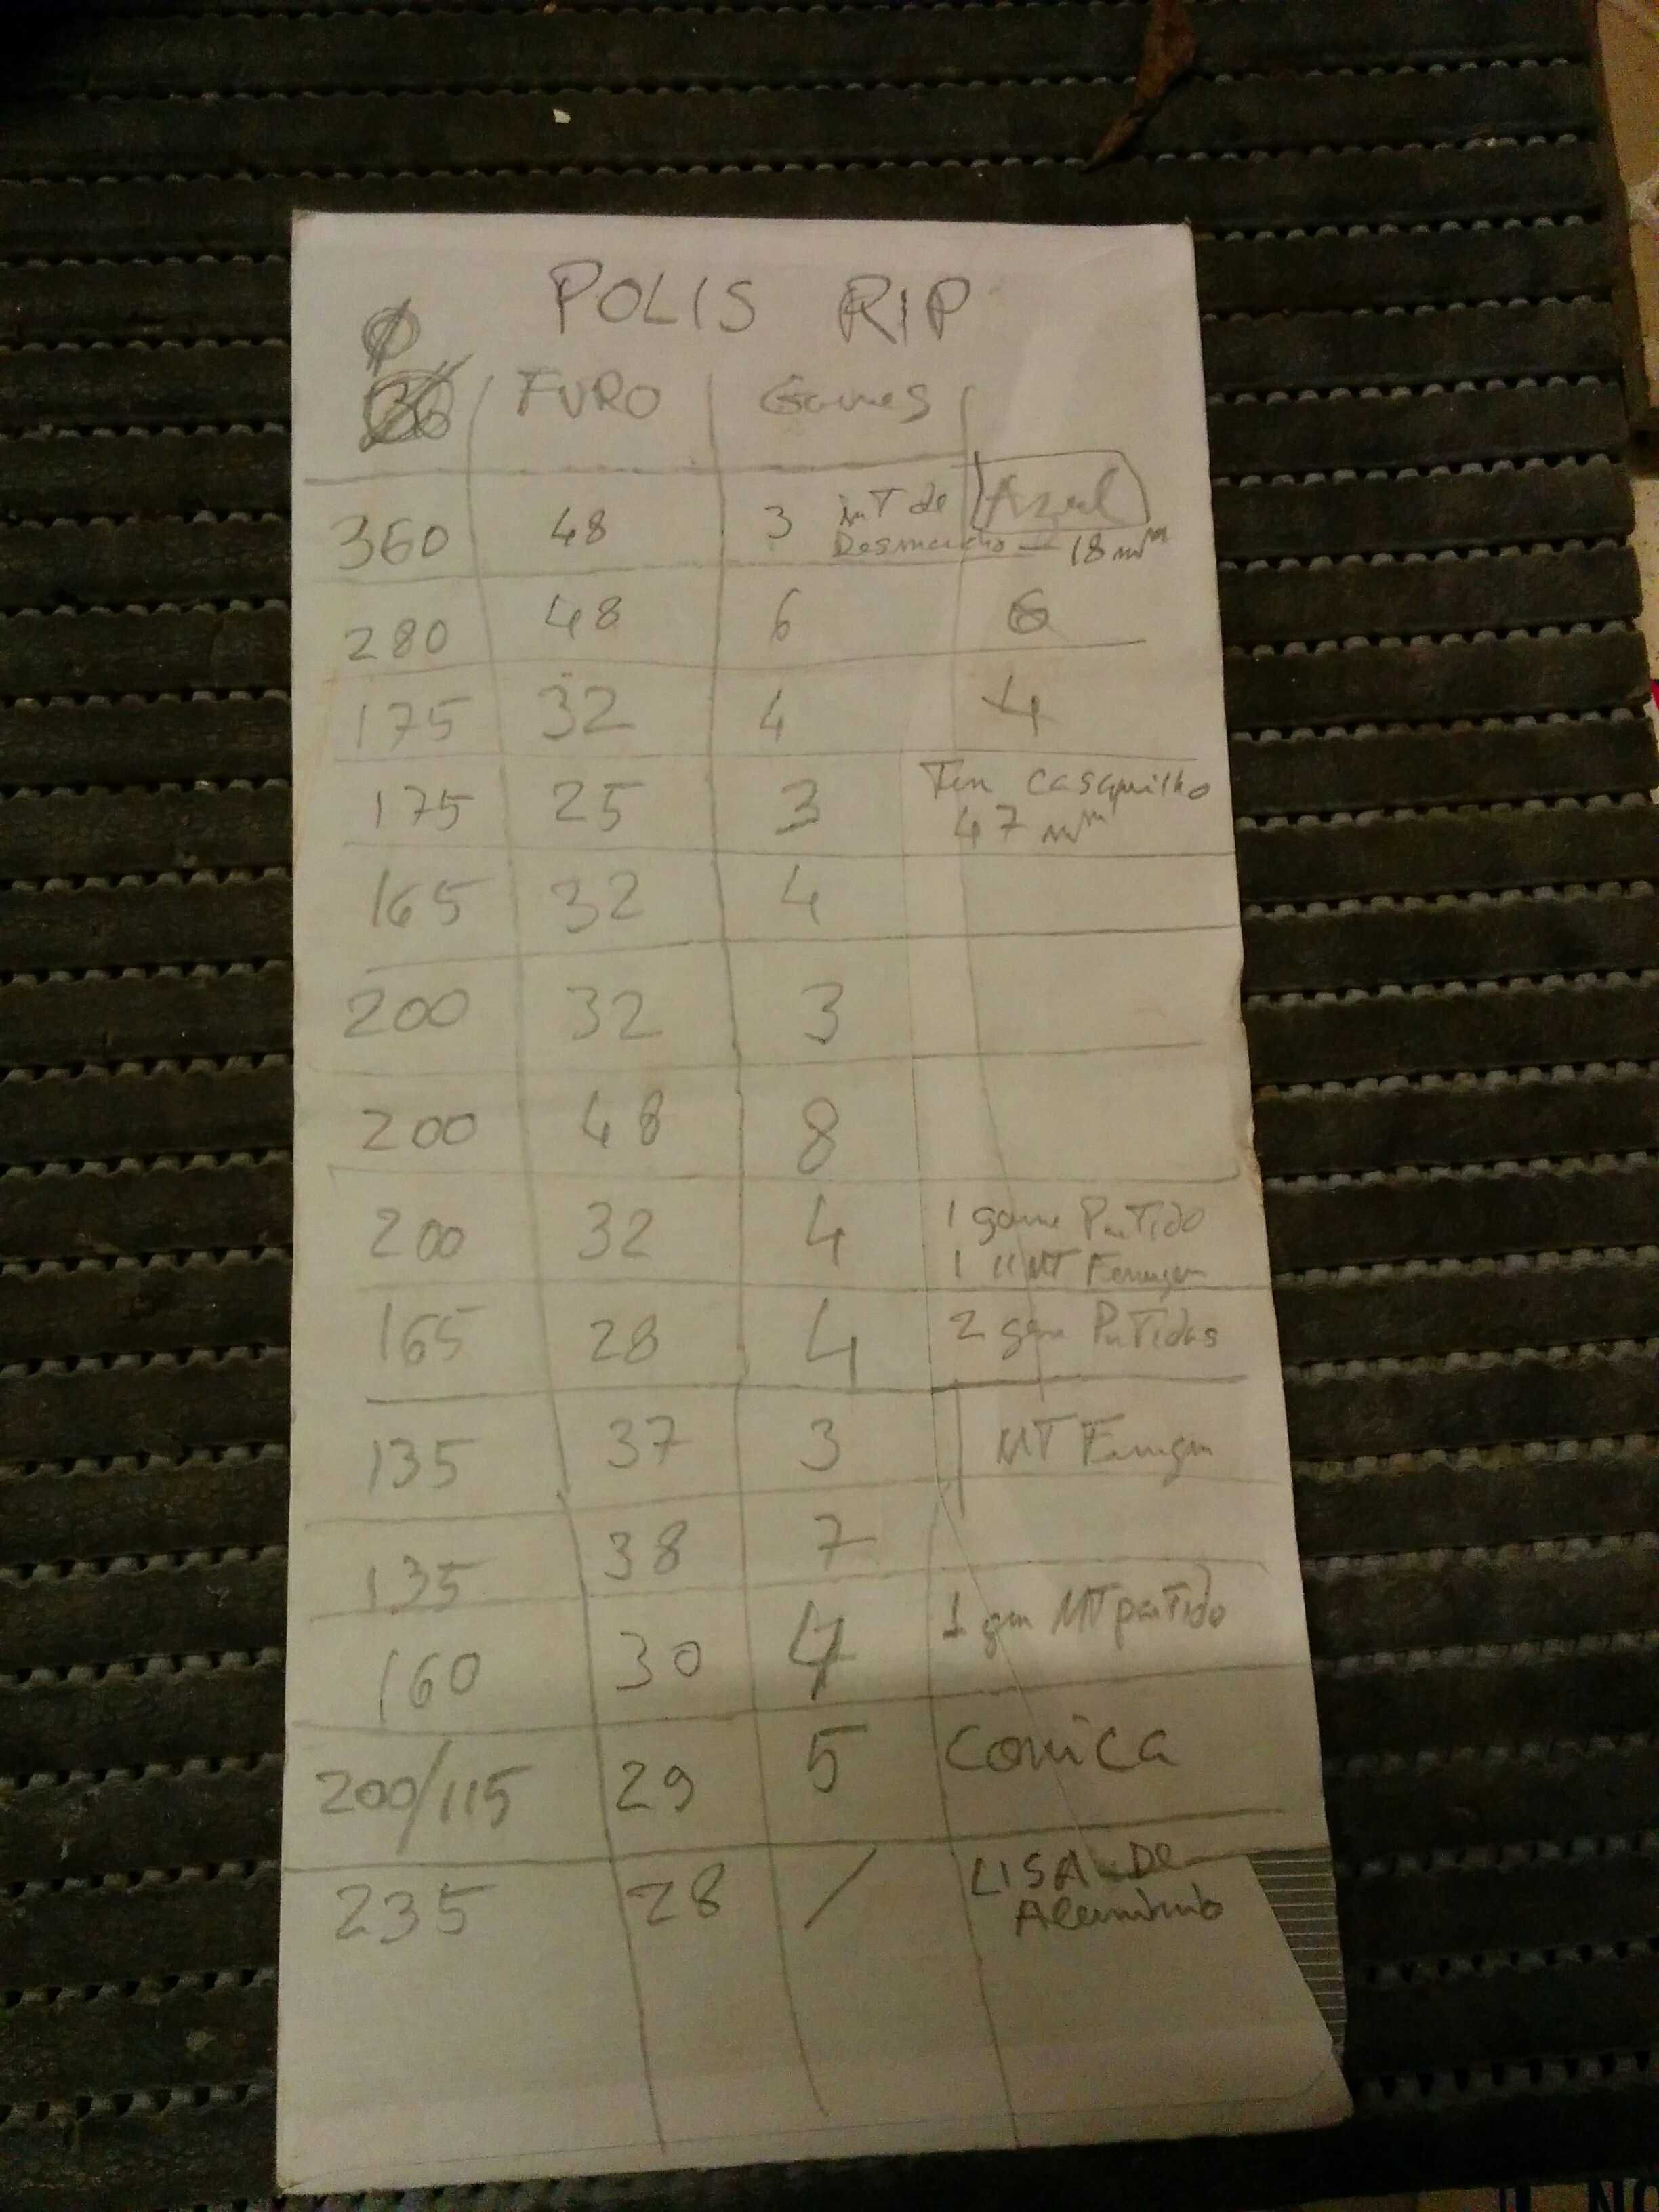 POLIS RIP
Ø
FURO Games
360 48 3 int de Azul
Desmancho — 18 mm
280 48 6 6
175 32 4 4
175 25 3 Tem casquilho
47 mm
165 32 4
200 32 3
200 48 8
200 32 4 1 gome Partido
1 " MT Ferrugem
165 28 4 2 gom Partidos
135 37 3 MT Ferrugem
135 38 7
160 30 4 1 gom MT partido
200/115 29 5 Conica
235 28 / LISA DE
Aluminio